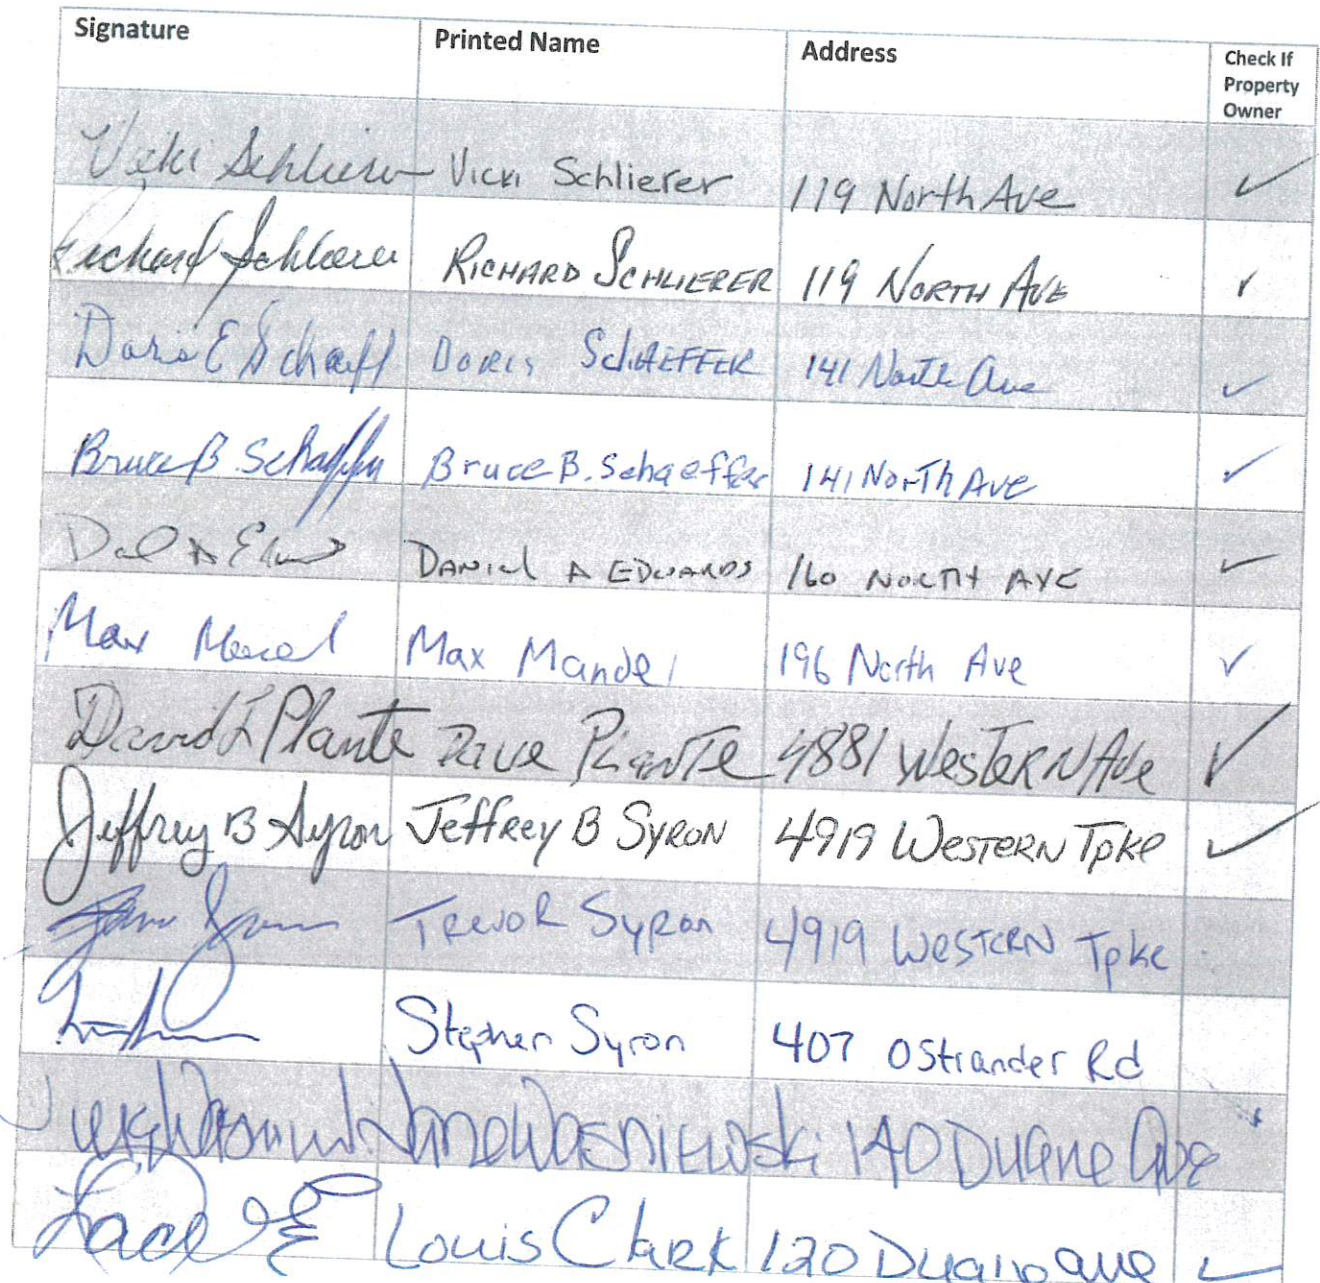 Signature Printed Name Address Check If
Property
Owner
Vicki Schlierer Vicki Schlierer 119 North Ave ✓
Richard Schlierer RICHARD SCHLIERER 119 NORTH AVE ✓
Doris E Schaeff DORIS SCHAEFFER 141 North Ave ✓
Bruce B. Schaeffer Bruce B. Schaeffer 141 North Ave ✓
DANIEL A EDWARDS 160 NORTH AVE ✓
Max Mandel Max Mandel 196 North Ave ✓
David L Plante Dave Plante 4881 Western Ave ✓
Jeffrey B Syron Jeffrey B Syron 4919 Western Tpke ✓
Trevor Syron 4919 Western Tpke
Stephen Syron 407 Ostrander Rd
Wasniewski 140 Duane Ave
Louis Clark 120 Duane ave ✓